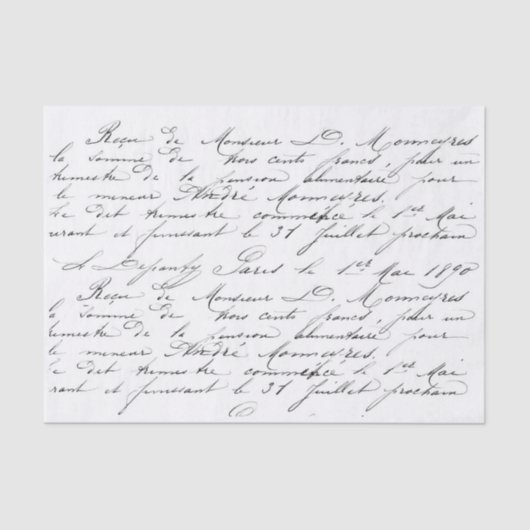 Reçu de Monsieur D. Monneyres
la somme de trois cents francs, pour un
trimestre de la pension alimentaire pour
le mineur André Monneyres.
Le dit trimestre commencé le 1er Mai
urant et finissant le 31 Juillet prochain
Paris le 1er Mai 1890
Reçu de Monsieur D. Monneyres
a somme de trois cents francs, pour un
rimestre de la pension alimentaire pour
le mineur André Monneyres.
Le dit trimestre commencé le 1er Mai
rant et finissant le 31 Juillet prochain